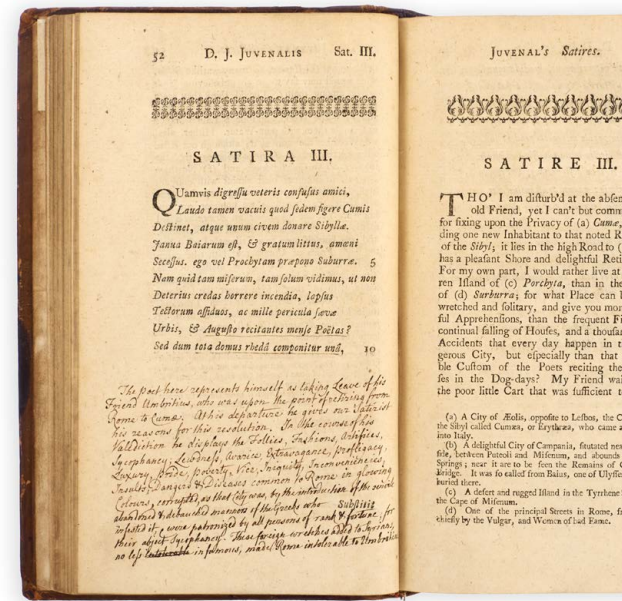 52 D. J. JUVENALIS Sat. III.
SATIRA III.
QUamvis digreſſu veteris confuſus amici,
Laudo tamen vacuis quod ſedem figere Cumis
Deſtinet, atque unum civem donare Sibyllæ.
Janua Baiarum eſt, & gratum littus, amœni
Seceſſus. ego vel Prochytam præpono Suburræ. 5
Nam quid tam miſerum, tam ſolum vidimus, ut non
Deterius credas horrere incendia, lapſus
Tectorum aſſiduos, ac mille pericula ſævæ
Urbis, & Auguſto recitantes menſe Poëtas?
Sed dum tota domus rhedâ componitur unâ, 10
The Poet here represents himself as taking Leave of his
Friend Umbritius, who was upon the point of retiring from
Rome to Cumæ. At his departure he gives our Satirist
his reasons for this resolution. In the course of his
Valediction he displays the Follies, Fashions, Artifices,
Sycophancy, Lewdness, Avarice, Extravagance, profligacy,
Luxury, Pride, poverty, Vice, Iniquity, Inconveniencies,
Insults, Dangers & Diseases common to Rome in glowing
Colours, corrupted, as that City was, by the introduction of the
abandoned & debauched manners of the Greeks who
Subſtitit
infested it, & were patronized by all persons of rank & fortune, for
their abject Sycophancy. These foreign wretches added to Syrians,
no less infamous, made Rome intolerable to Umbritius
JUVENAL's Satires.
SATIRE III.
THO' I am diſturb'd at the
old Friend, yet I can't but
for fixing upon the Privacy of (a) Cumæ,
ding one new Inhabitant to that noted
of the Sibyl; it lies in the high Road to
has a pleaſant Shore and delightful
For my own part, I would rather live at
ren Iſland of (c) Porchyta, than in the
of (d) Surburra; for what Place can
wretched and ſolitary, and give you
ful Apprehenſions, than the frequent
continual falling of Houſes, and a
Accidents that every day happen in
gerous City, but eſpecially than that
ble Cuſtom of the Poets reciting
ſes in the Dog-days? My Friend
the poor little Cart that was ſufficient
(a) A City of Æolis, oppoſite to Leſbos, the
the Sibyl called Cumæa, or Erythræa, who came
into Italy.
(b) A delightful City of Campania, ſituated
ſide, between Puteoli and Miſenum, and abounds
Springs; near it are to be ſeen the Remains of
Bridge. It was ſo called from Baius, one of
buried there.
(c) A deſert and rugged Iſland in the Tyrrhene
the Cape of Miſenum.
(d) One of the principal Streets in Rome,
chiefly by the Vulgar, and Women of bad Fame.